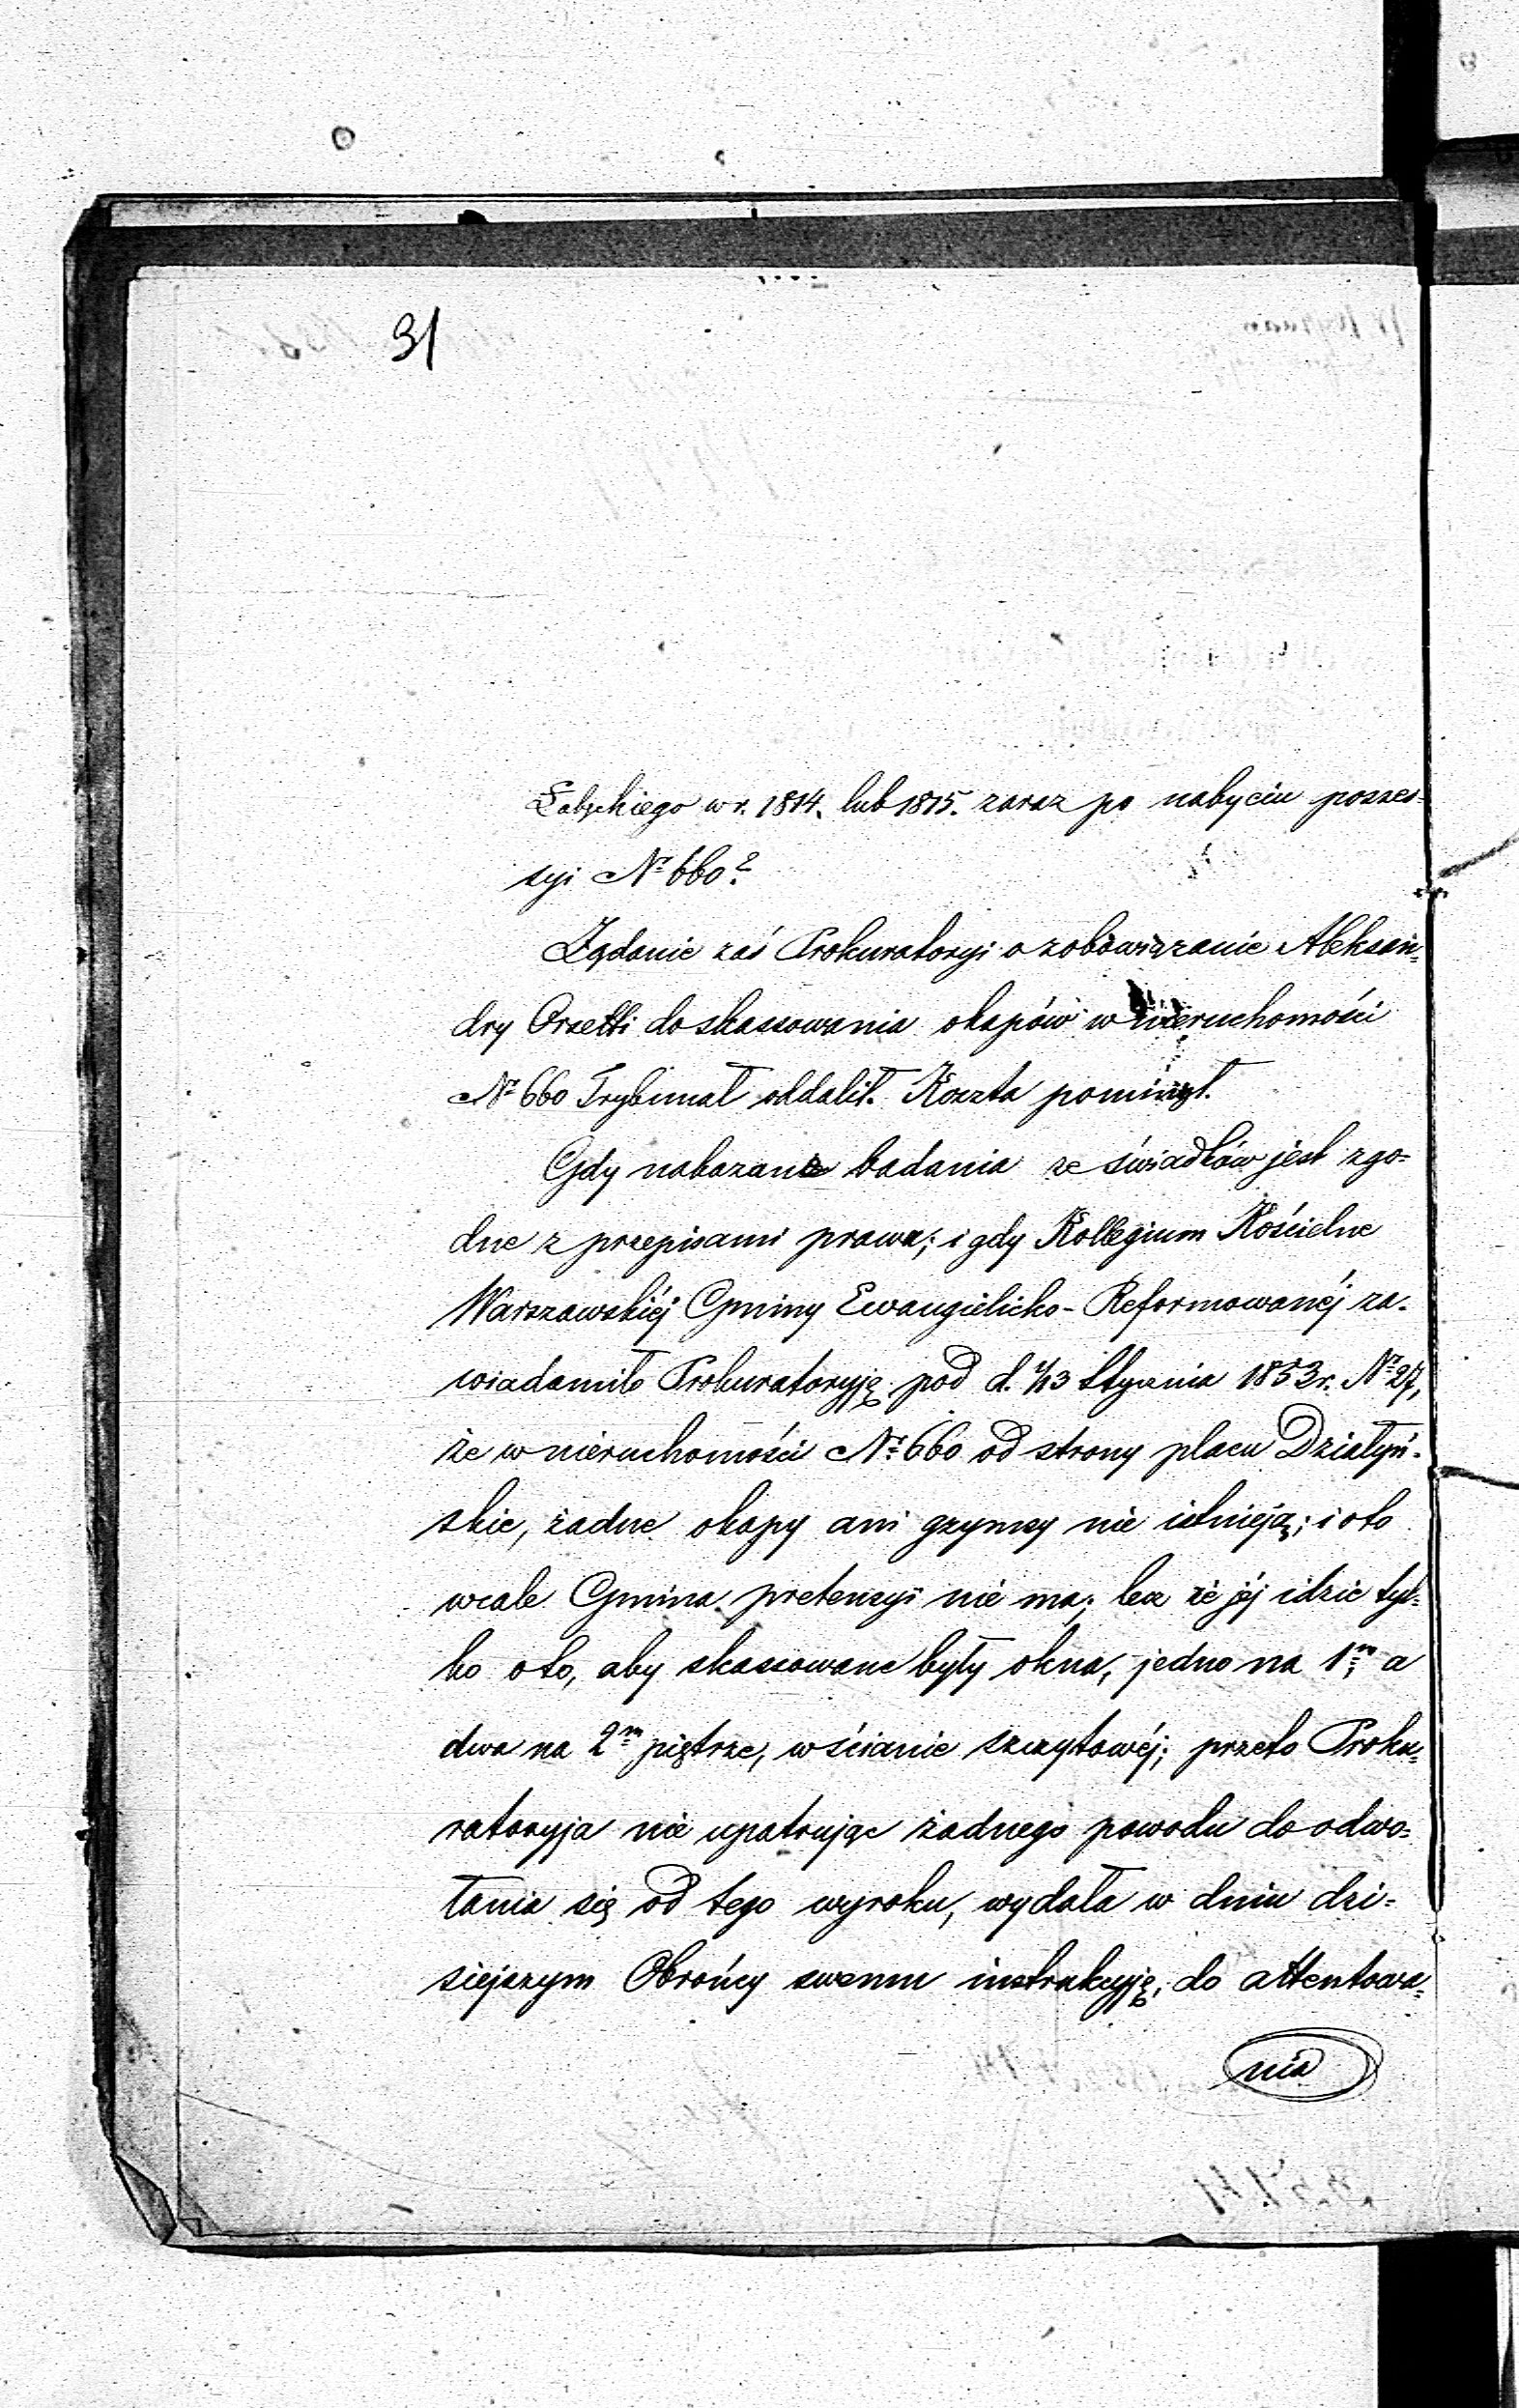 31
Łabęckiego w r. 1814. lub 1815. zaraz po nabyciu posses-
syi № 660?
Żądanie zaś Prokuratoryi o zobowiązanie Aleksan-
dry Orsetti do skassowania okapów w nieruchomości
№ 660 Trybunał oddalił. Koszta pominął.
Gdy nakazane badania ze świadków jest zgo-
dne z przepisami prawa; i gdy Kollegium Kościelne
Warszawskiéj Gminy Ewangielicko-Reformowanéj za-
wiadomiło Prokuratoryję pod d. 1/13 Stycznia 1853 r. № 27,
że w nieruchomości № 660 od strony placu Działyń-
skie, żadne okapy ani gzymsy nie istnieją; i oto
wcale Gmina pretensyi nie ma; lecz że jéj idzie tyl-
ko oto, aby skassowane były okna, jedno na 1m, a
dwa na 2m piętrze, w ścianie szczytowéj; przeto Proku-
ratoryja nie upatrując żadnego powodu do odwo-
łania się od tego wyroku, wydała w dniu dzi-
siejszym Obrońcy swemu instrukcyję, do attentowa-
nia